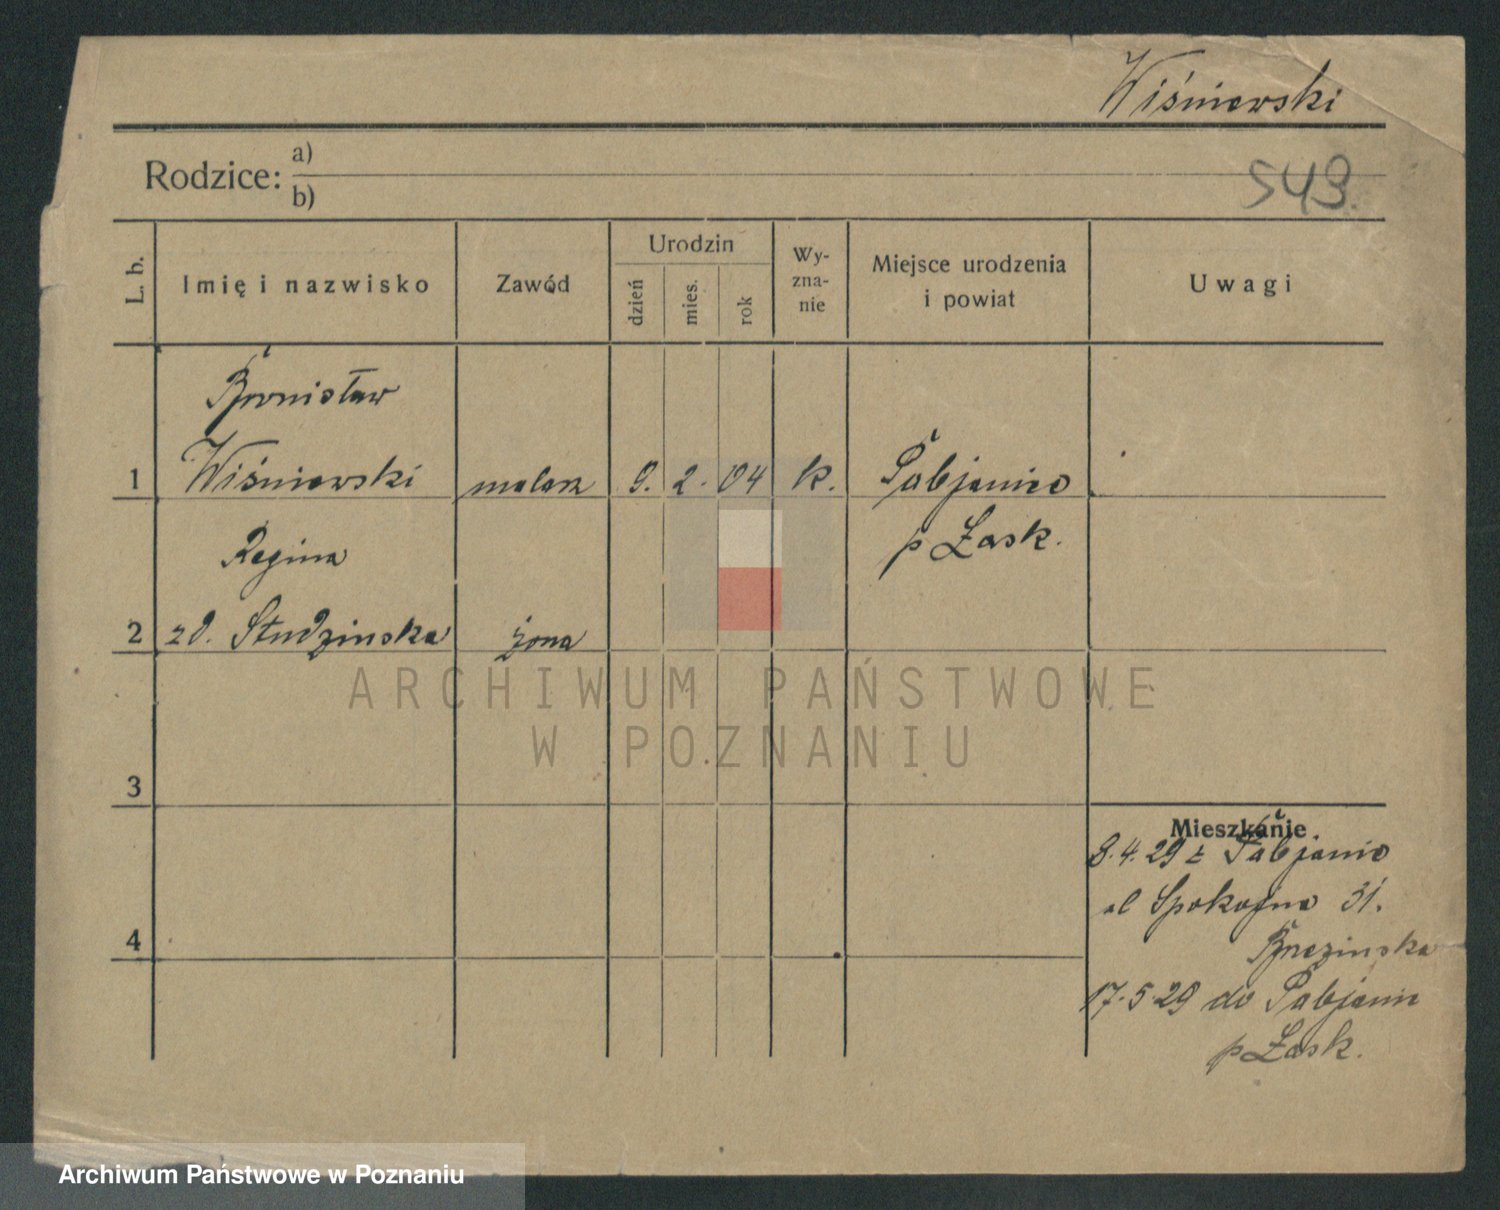 Wiśniewski
Rodzice: a)
b)
543.
L. b.
Imię i nazwisko
Zawód
Urodzin
dzień
mies.
rok
Wy-
zna-
nie
Miejsce urodzenia
i powiat
Uwagi
Bronisław
1 Wiśniewski malarz 9. 2. 04 k. Pabjanice
Regina p Łask.
2 zd. Studzinska żona
ARCHIWUM PAŃSTWOWE
W POZNANIU
3
Mieszkanie
8.4.29 z Pabjanic
ul Spokojna 31.
4
Brezinska
17.5.29 do Pabjanic
p Łask.
Archiwum Państwowe w Poznaniu